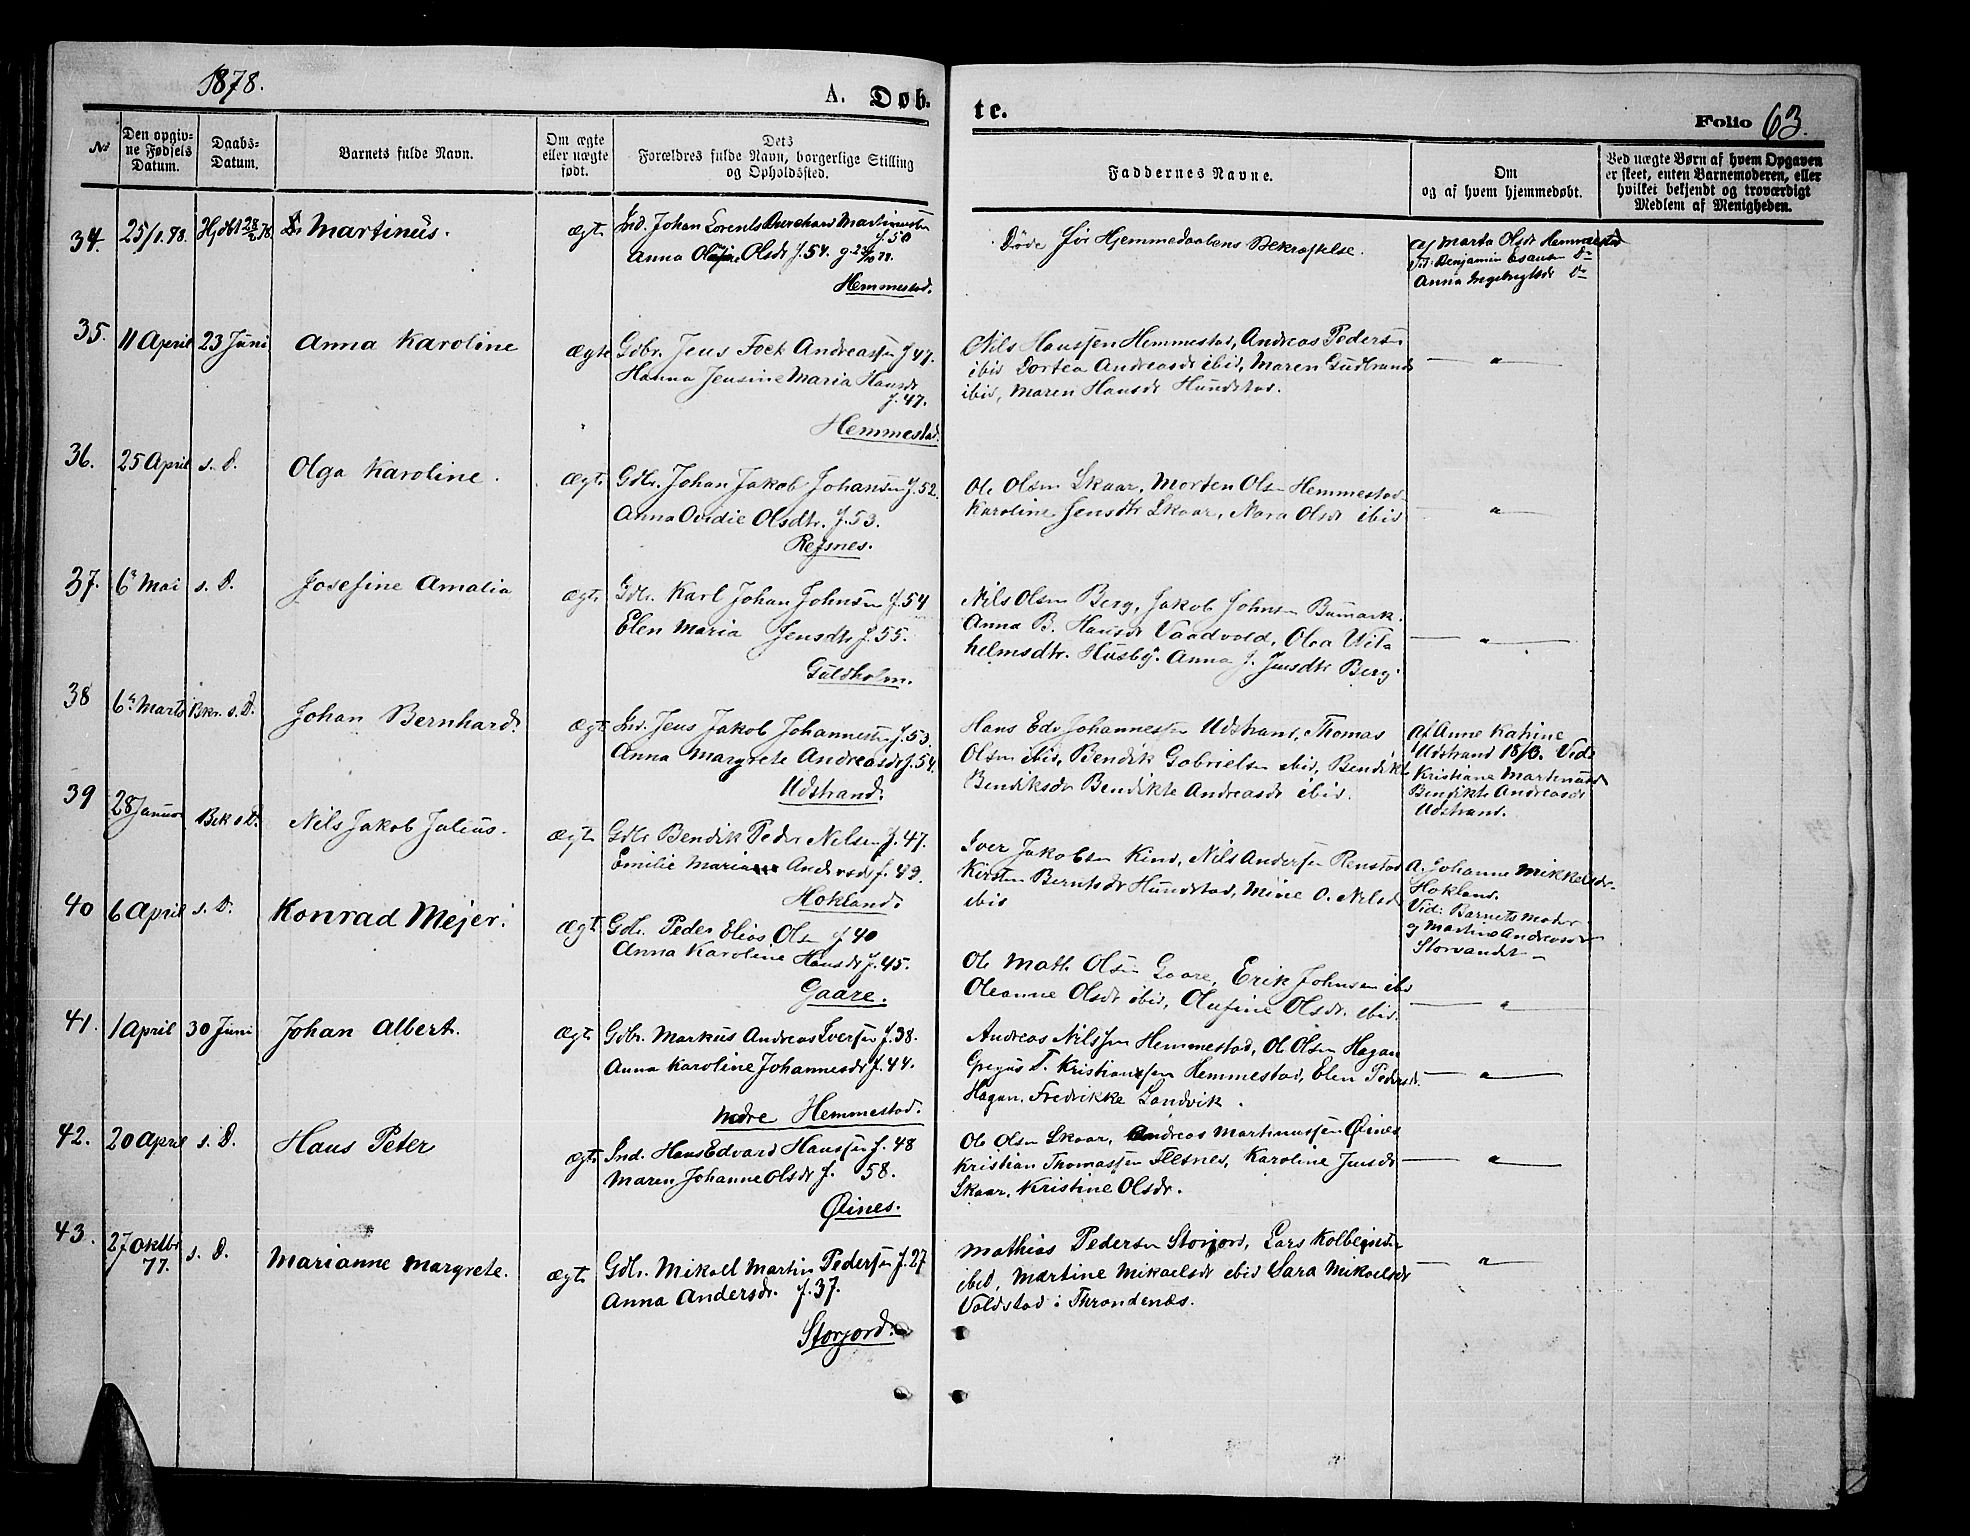 1878.
A. Døb-
te.
Folio 63.
No
Den opgiv-
ne Fødsels
Datum.
Daabs-
Datum.
Barnets fulde Navn.
Om ægte
eller uægte
født.
Dets
Forældres fulde Navn, borgerlige Stilling
og Opholdssted.
Faddernes Navne.
Om
og af hvem hjemmedøbt.
Ved uægte Børn af hvem Opgaven
er skeet, enten Barnemoderen, eller
hvilket bekjendt og troværdigt
Medlem af Menigheden.
34. 25/1.78. Martinus. ægt. Ind. Johan Lorents Burchard Martinussen
f. 50
Anna Olsdr f. 54.
Hemmestad.
Døde før Hjemmedaabens Bekræftelse.
af Marta Olsdr Hemmestad
Vid: Benjamin Esausen Do
Anna Ingebrigtsdr Do
35. 11 April 23 Juni Anna Karoline ægte Gdbr. Jens Foct Andreassen f. 47.
Hanna Jensine Maria Hansdr
f. 47.
Hemmestad.
Nils Hanssen Hemmestad, Andreas Pedersen
ibid Dortea Andreasdr ibid, Maren Gudbrands
ibid, Maren Hansdr Hundstad.
— " —
36. 25 April s. D. Olga Karoline. ægt. Gdbr. Johan Jakob Johansen f. 52.
Anna Ovidie Olsdtr. f. 53.
Refsnes.
Ole Olsen Skaar, Morten Olsen Hemmestad
Karoline Jensdtr Skaar, Nara Olsdr ibid
— " —
37. 6 Mai s. D. Josefine Amalia ægt. Gdbr. Karl Johan Johnsen f. 54
Elen Maria Jensdtr f. 55.
Guldholm.
Nils Olsen Berg, Jakob Johnsen Bumark.
Anna B. Hansdr Vaadvold, Olea Vil-
helmsdtr. Husby. Anna J. Jensdtr Berg.
— " —
38 6 Marts Bkr. s. D. Johan Bernhard. ægt. Ind. Jens Jakob Johannessen f. 53.
Anna Margrete Andreasdr f. 54.
Udstrand.
Hans Edv Johannessen Udstrand, Thomas
Olsen ibid, Bendik Gabrielsen ibid, Bendikte
Bendiksdr Bendikte Andreasdr ibid.
af Anne Katrine
Udstrand 18/3. Vide
Kristiane Martinusdr
Bendikte Andreasdr
Udstrand.
39 28 Januar Bek s D. Nils Jakob Julius. ægt. Gdbr Bendik Peder Nilsen f. 47.
Emilie Maria Andersdr f. 49.
Hokland.
Iver Jakobsen Kind, Nils Andersen Renstad
Kirsten Berntsdr Hundstad, Mine O. Nilsdr
ibid
A. Johanne Mikkelsdr.
Hokland.
Vid: Barnets Moder
og Martine Andreasdr
Storvandet —
40 6 April s. D. Konrad Mejer. ægt. Gdbr. Peder Elias Olsen f 40
Anna Karoline Hansdr f. 45.
Gaare.
Ole Math Olsen Gaare, Erik Johnsen ibid
Oleanne Olsdr ibid, Olufine Olsdr. ibid.
— " —
41. 1 April 30 Juni Johan Albert. ægt Gdbr. Markus Andreas Iversen f. 38.
Anna Karoline Johannesdr f. 44.
Nedre Hemmestad.
Andreas Nilssen Hemmestad, Ole Olsen Hagan
Gregus T. Kristianssen Hemmestad, Elen Pedersd.
Hagan, Fredrikke Sandvik.
— " —
42. 20 April s. D. Hans Peter ægt. Ind. Hans Edvard Hanssen f. 48
Maren Johanne Olsdr f. 58.
Øines.
Ole Olsen Skaar, Andreas Martinussen Øines
Kristian Thomassen Flesnes, Karoline Jensdr
Skaar, Kristine Olsdr.
— " —
43. 27 Oktbr
77. s. D. Marianne Margrete. ægt. Gdbr. Mikael Martin Pedersen f. 27
Anna Andersdr. f. 37.
Storjord.
Mathias Pedersen Storjord, Lars Kolbeinsen
ibid, Martine Mikaelsdr ibid Sara Mikaelsdr
Voldstad i Throndenæs.
— " —